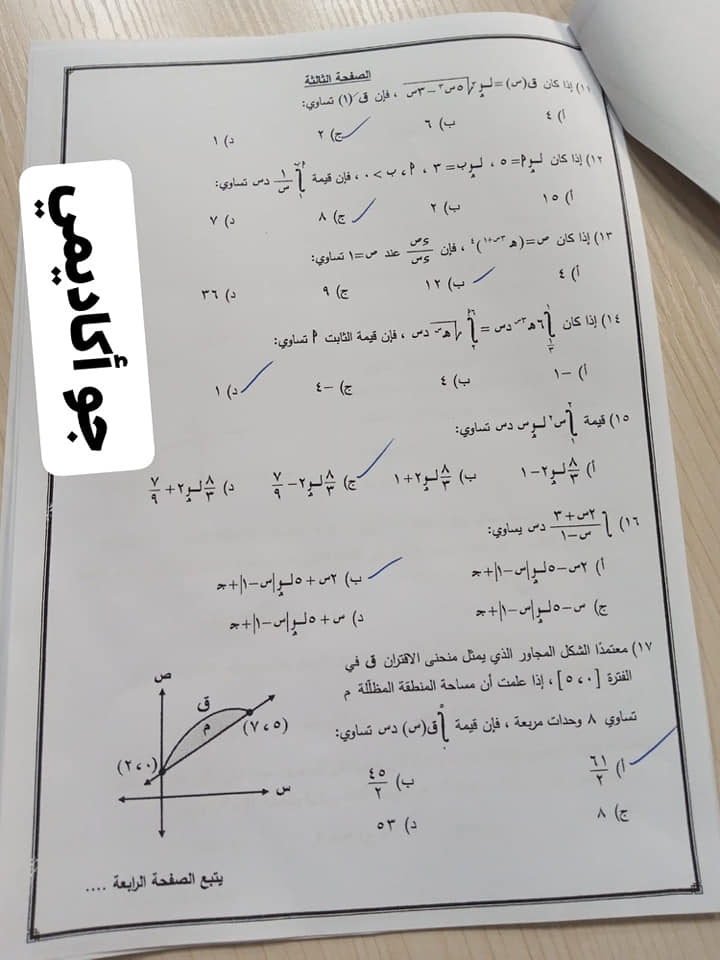 الصفحة الثالثة
١١) إذا كان ق(س) = لـو√(٥س٣ − ٣س) ، فإن قَ(١) تساوي:
أ) ٤ ب) ٦ ج) ٢ د) ١
١٢) إذا كان لـوم = ٥ ، لـوب = ٣ ، م ، ب > ٠ ، فإن قيمة ∫ ١/س دس تساوي:
أ) ١٥ ب) ٢ ج) ٨ د) ٧
١٣) إذا كان ص = (هـ ٣س+١)٤ ، فإن دص/دس عند ص = ١ تساوي:
أ) ٤ ب) ١٢ ج) ٩ د) ٣٦
١٤) إذا كان ∫ ٦هـ٣س دس = ∫ √هـس دس ، فإن قيمة الثابت م تساوي:
أ) −١ ب) ٤ ج) −٤ د) ١
١٥) قيمة ∫ س٢ لـوس دس تساوي:
أ) ٨/٣ لـو٢ − ١ ب) ٨/٣ لـو٢ + ١ ج) ٨/٣ لـو٢ − ٧/٩ د) ٨/٣ لـو٢ + ٧/٩
١٦) ∫ (٢س + ٣)/(س − ١) دس يساوي:
أ) ٢س − ٥لـو|س − ١| + جـ ب) ٢س + ٥لـو|س − ١| + جـ
ج) س − ٥لـو|س − ١| + جـ د) س + ٥لـو|س − ١| + جـ
١٧) معتمدًا الشكل المجاور الذي يمثل منحنى الاقتران ق في
الفترة [٠ ، ٥] ، إذا علمت أن مساحة المنطقة المظلّلة م
تساوي ٨ وحدات مربعة ، فإن قيمة ∫ ق(س) دس تساوي:
أ) ٦١/٢ ب) ٤٥/٢
ج) ٨ د) ٥٣
ص
ق
م
(٧،٥)
(٢،٠)
س
يتبع الصفحة الرابعة ....
جو أكاديمي